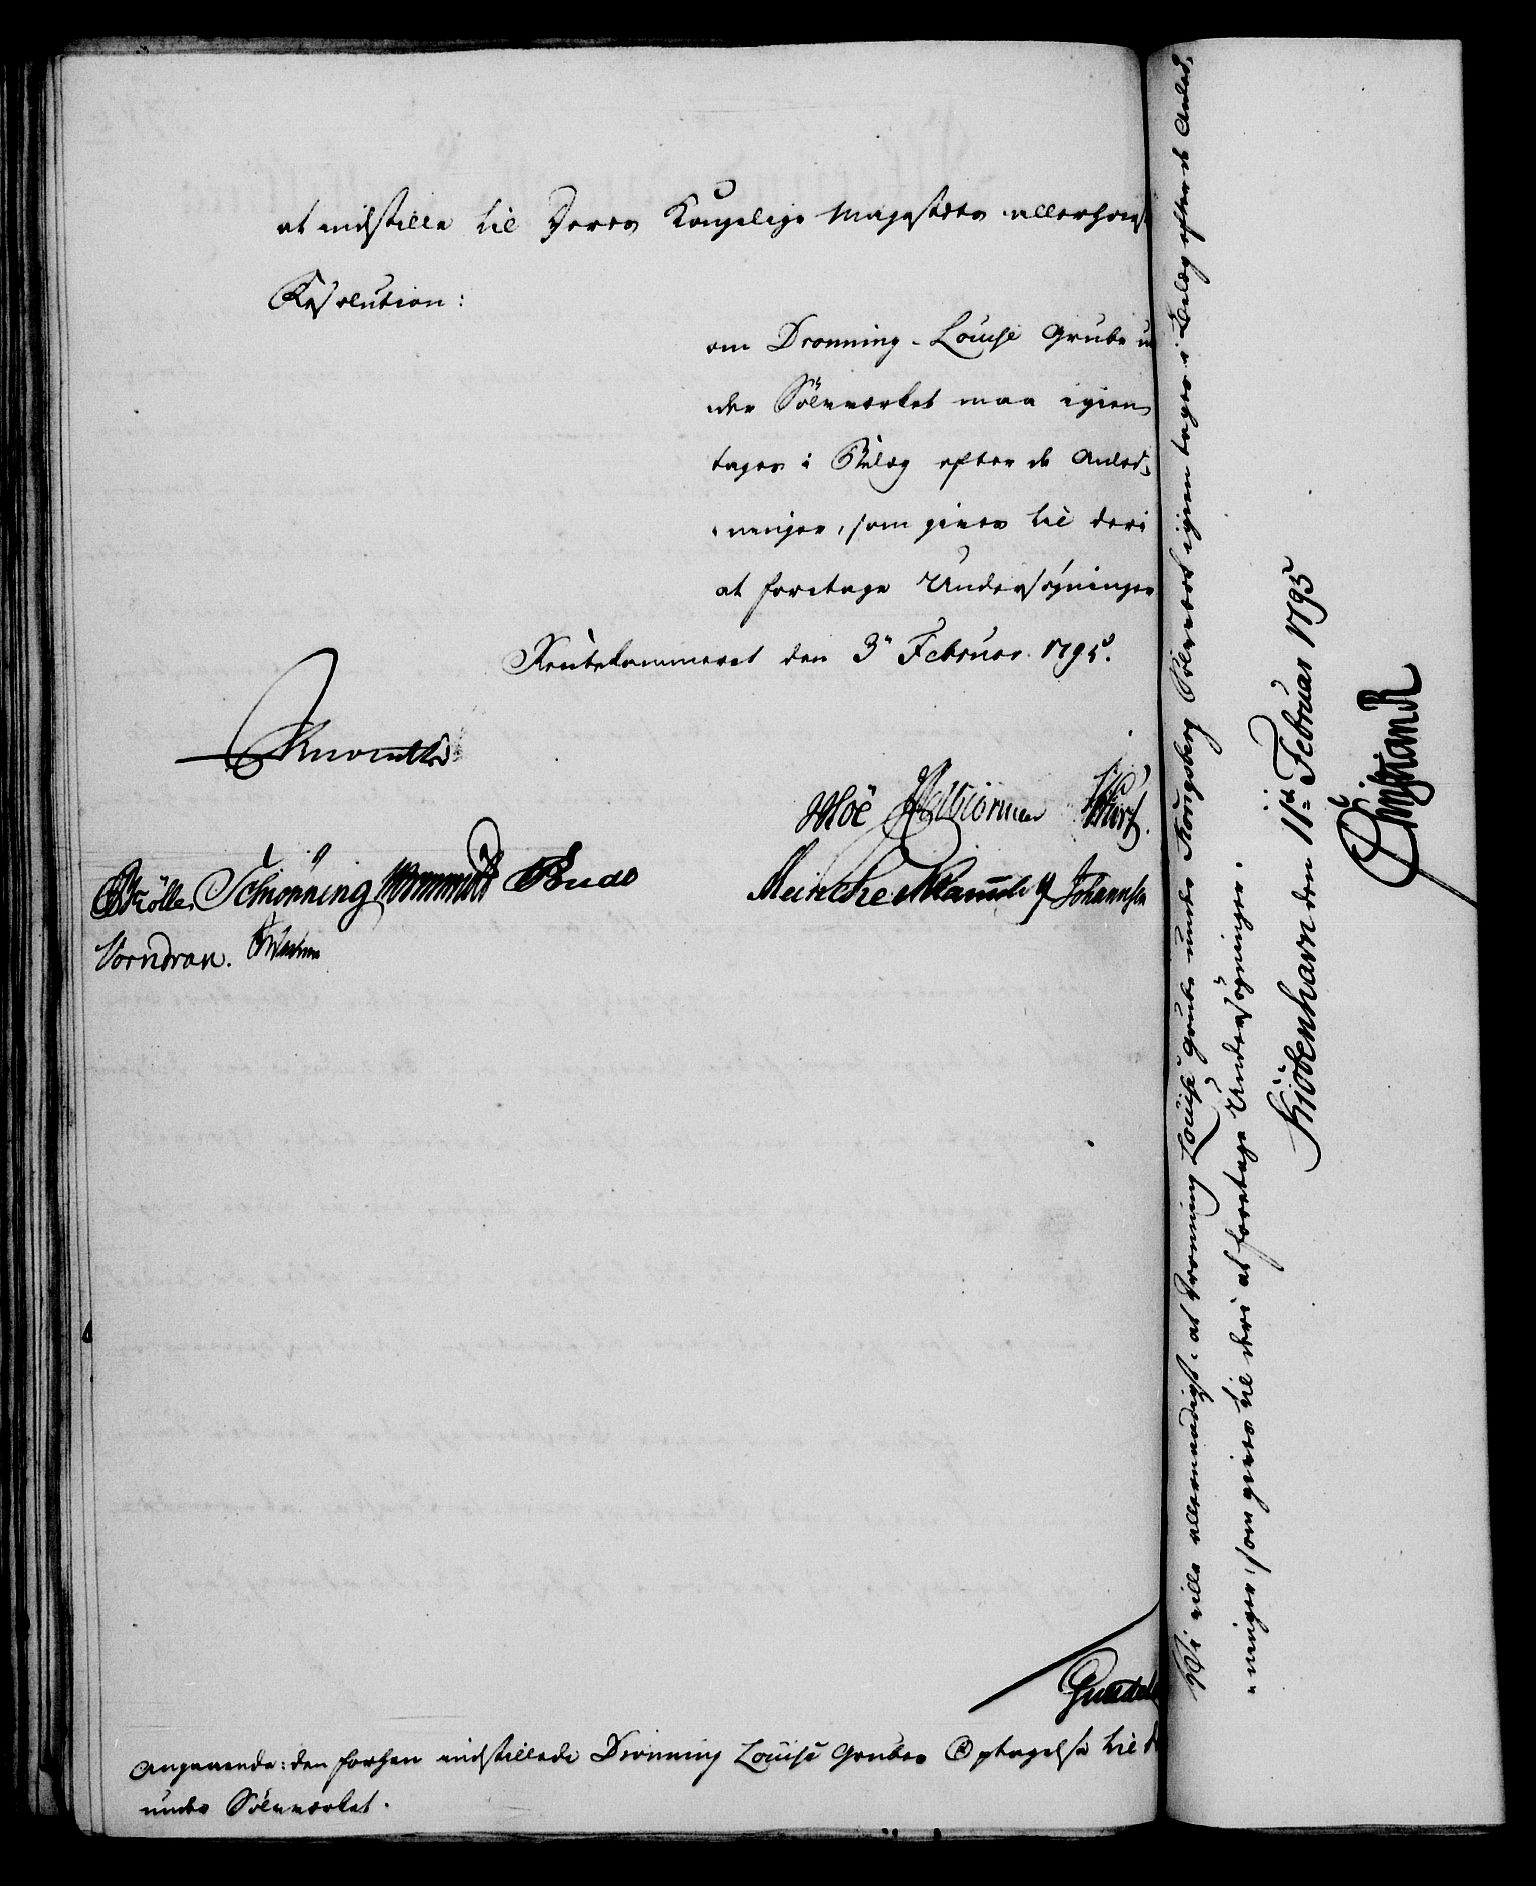 at indstille til Deres Kongelige Majestæts allerhøist
Resolution:
om Dronning Louise Grube un
der Sølvværket maa igien
tages i Belæg efter de Anled-
ninger, som gives til deri
at foretage Undersøgninger
Rentekammeret den 3 Februar 1795.
Moe Halbiørnsen
Møller Schiønning Bude
Meincke Johannsen
Vorndran.
Angaaende: den forhen indstillede Dronning Louise Grubes Optagelse til
under Sølvværket.
Vi ville allernaadigst: at Dronning Louise Grube under Kongsberg Sølvværk igien tages i Belæg efter de Anled-
ninger, som gives til deri at foretage Undersøgninger.
Kiöbenhavn den 11te Februar 1795
Christian R